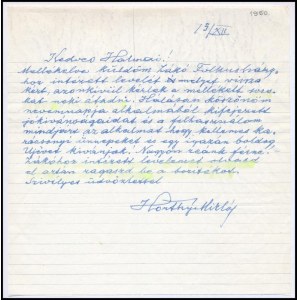 1950.
13/XII.
Kedves Halmai!
Mellékelve küldöm Zákó
hoz intézett levelet melyet vissza
kért, azonkívül kérlek a mellékelt
neki átadni. Hálásan köszönöm
nevenapja alkalmából kifejezett
jókívánságaidat és a felhasználom
mindjárt az alkalmat hogy kellemes ka-
rácsonyi ünnepeket és egy igazán boldog
Ujévet kívánjak. Nagyon
Zákóhoz intézett levelemet olvasd
el aztán ragaszd be a borítékot.
Szívélyes üdvözlettel
Horthy Miklós